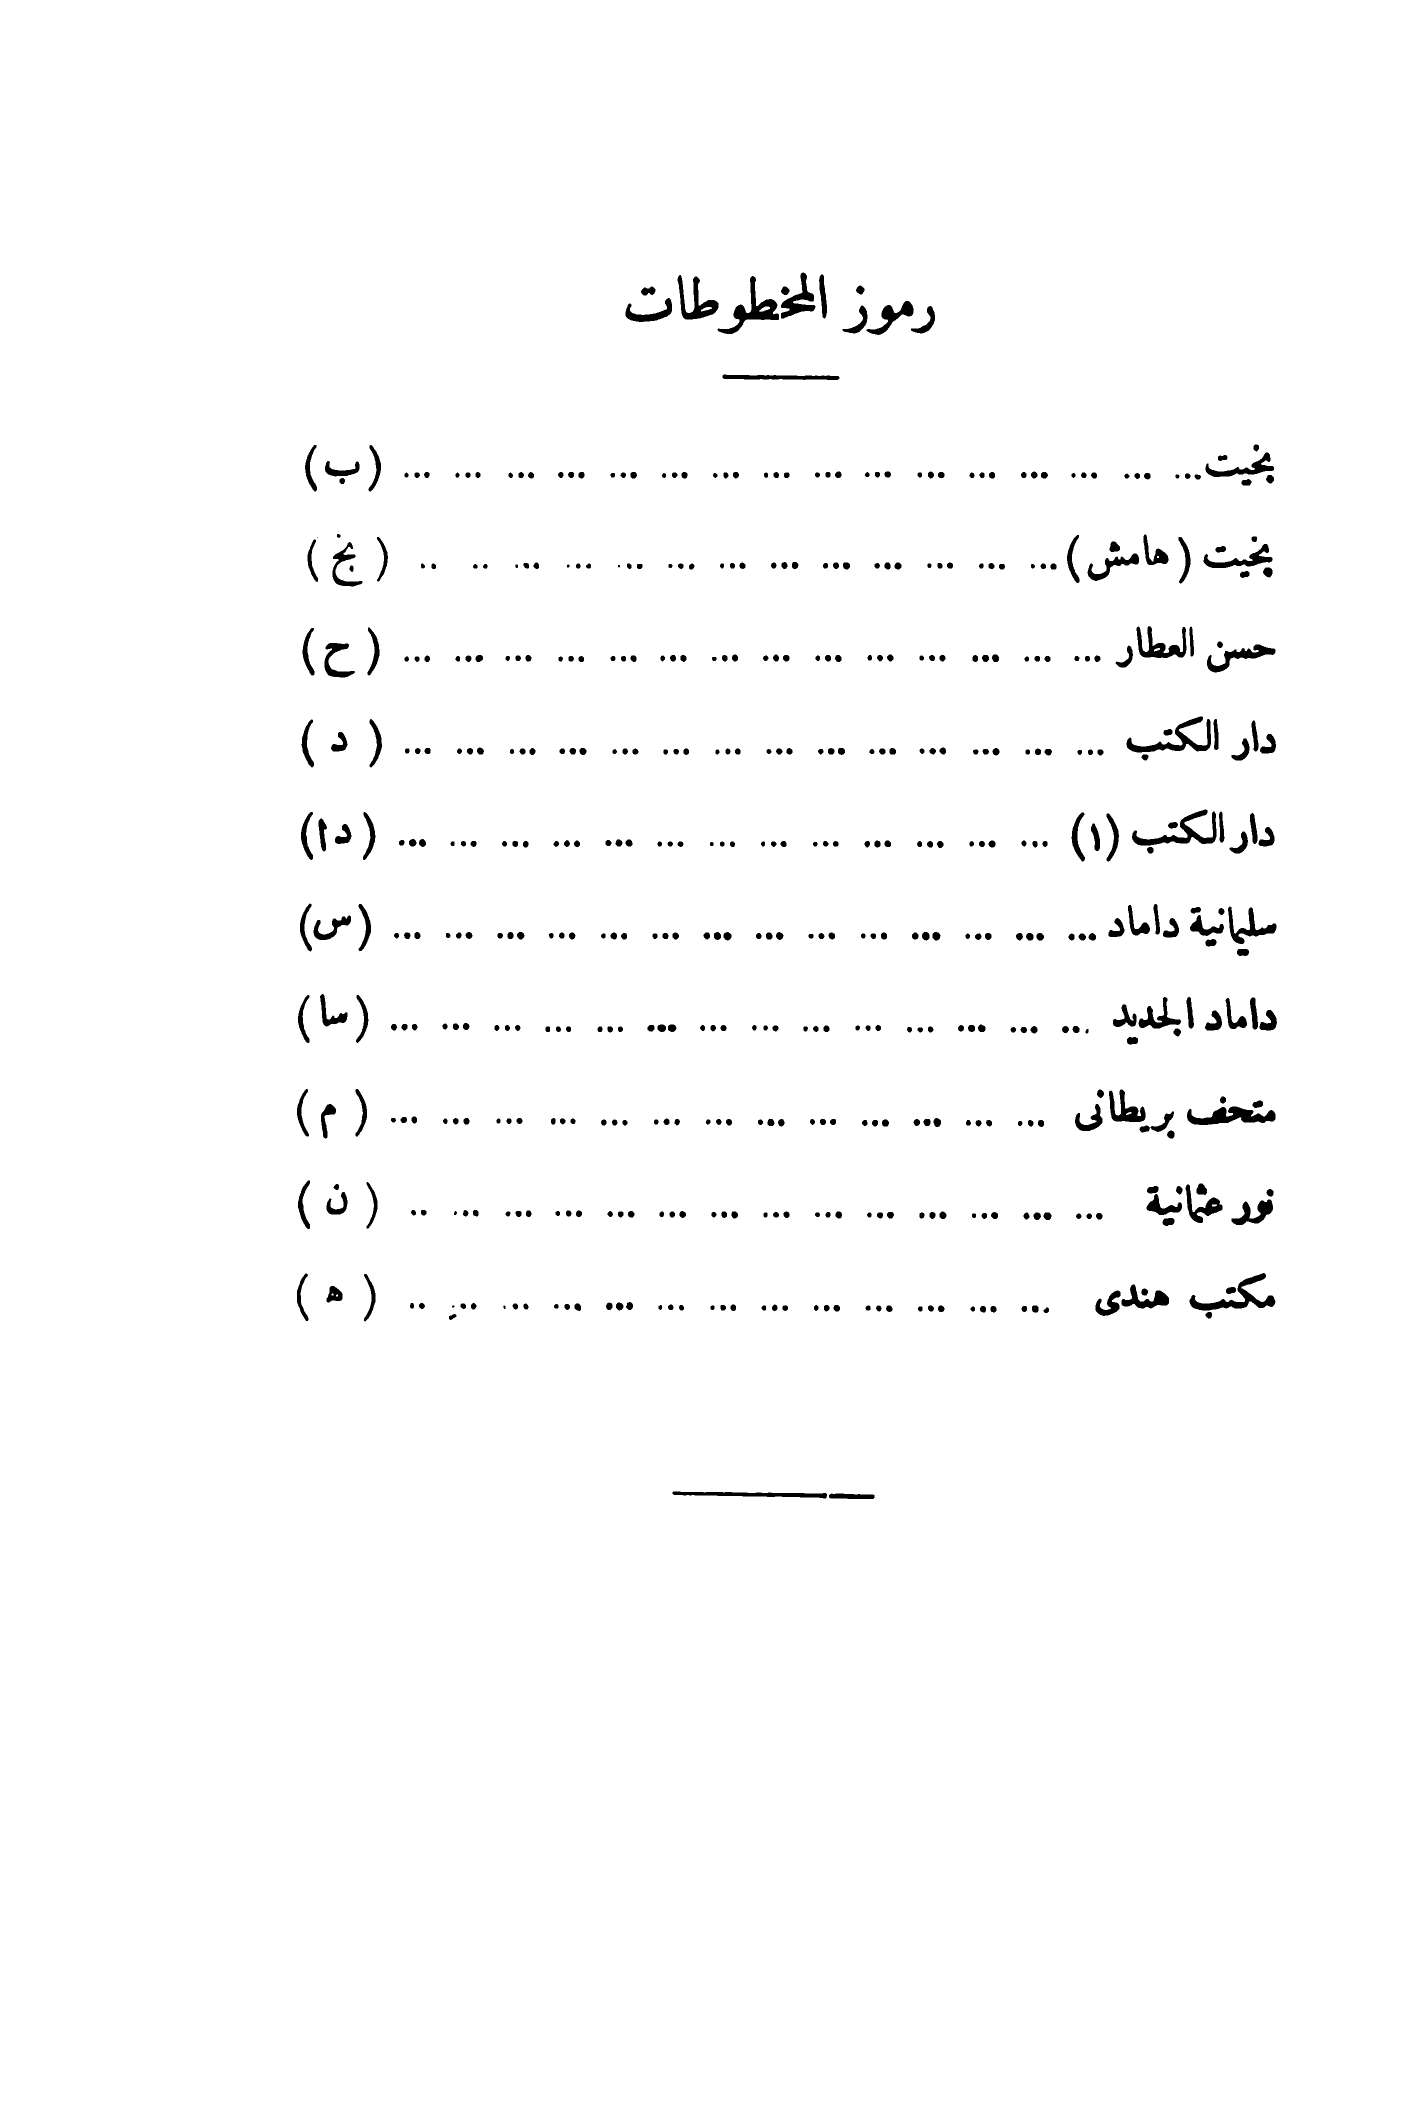 رموز المخطوطات
بخيت ... ... ... ... ... ... ... ... ... ... ... ... ... ... ... ... (ب)
بخيت (هامش) ... ... ... ... ... ... ... ... ... ... ... .. .. (بخ)
حسن العطار ... ... ... ... ... ... ... ... ... ... ... ... ... ... (ح)
دار الكتب ... ... ... ... ... ... ... ... ... ... ... ... ... ... (د)
دار الكتب (١) ... ... ... ... ... ... ... ... ... ... ... ... ... (دا)
سليمانية داماد ... ... ... ... ... ... ... ... ... ... ... ... ... ... (س)
داماد الجديد ... ... ... ... ... ... ... ... ... ... ... ... ... ... (سا)
متحف بريطانى ... ... ... ... ... ... ... ... ... ... ... ... ... (م)
نور عثمانية ... ... ... ... ... ... ... ... ... ... ... ... ... .. (ن)
مكتب هندى ... ... ... ... ... ... ... ... ... ... ... ... .. (ه)